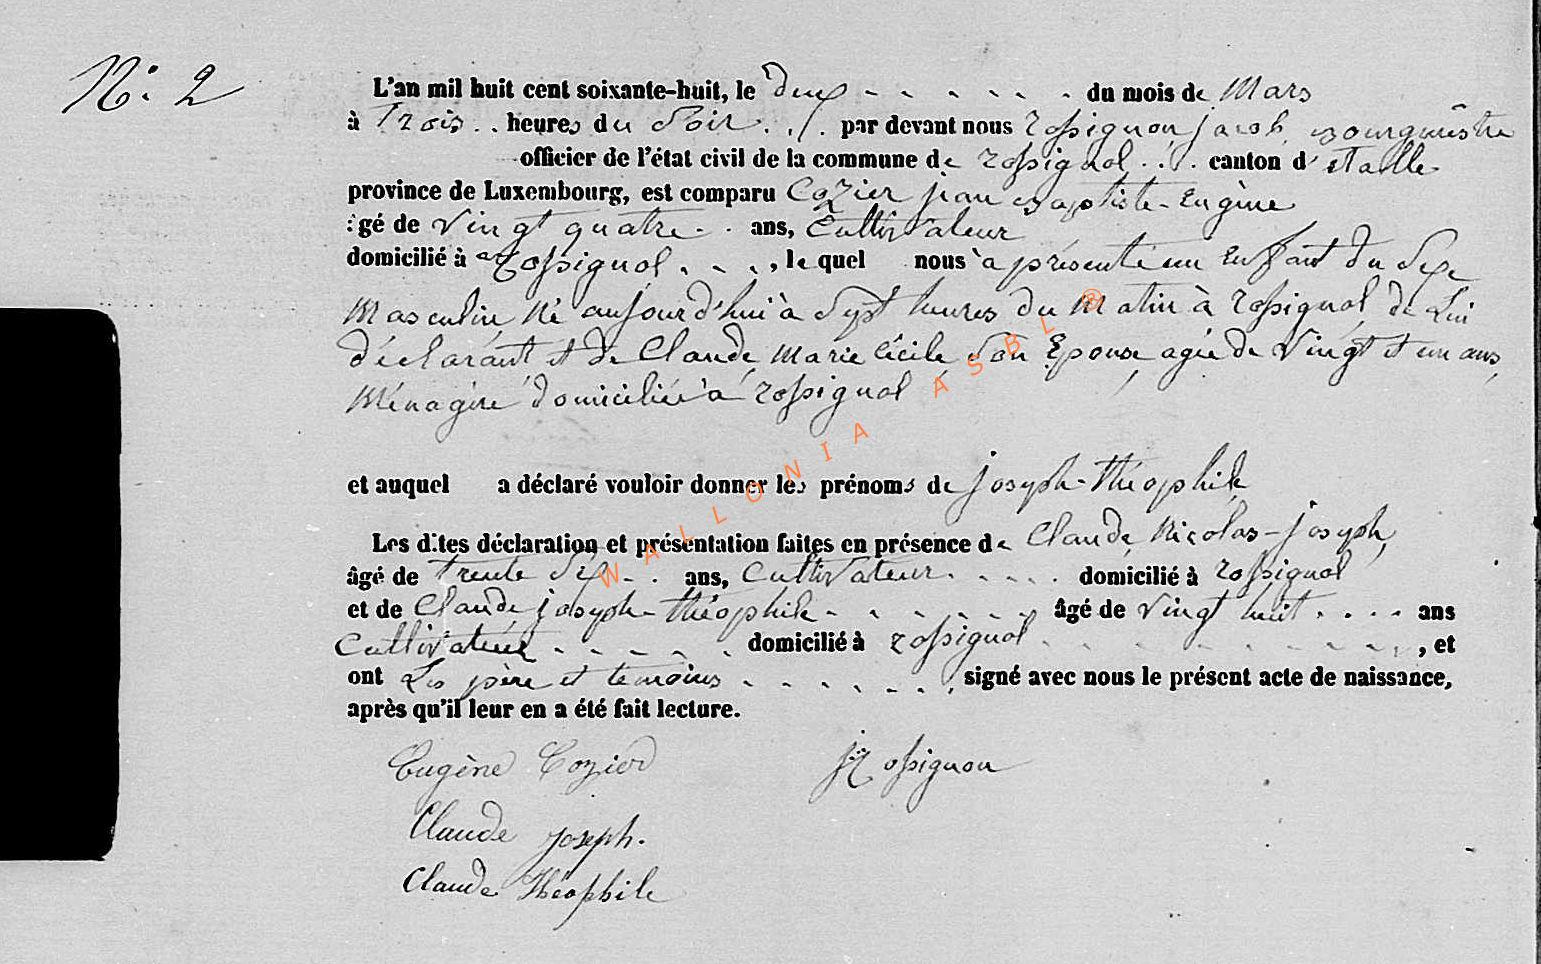 N.º 2
L'an mil huit cent soixante-huit, le deux - - - - - - du mois de Mars
à Trois . . heures du Soir . . / . par devant nous Rossignon jacob, Bourgmestre
officier de l'état civil de la commune de rossignol . . . canton d'Etalle
province de Luxembourg, est comparu Cozier jean Baptiste-Eugène
âgé de Vingt quatre - . ans, Cultivateur
domicilié à Rossignol . - . - , lequel nous a présenté un Enfant du Sexe
Masculin, Né aujourd'hui à Sept heures du Matin à rossignol, de Lui
déclarant et de Claude, Marie Cécile, Son Epouse, agée de Vingt et un ans,
Ménagère, domiciliée à rossignol
et auquel a déclaré vouloir donner les prénoms de joseph-théophile
Les dites déclaration et présentation faites en présence de Claude, Nicolas-joseph,
âgé de trente Six - . ans, Cultivateur . - - - . domicilié à rossignol
et de Claude, joseph-théophile - - - - - - - âgé de Vingt huit . . . . ans
Cultivateur - - - - - . domicilié à rossignol - - - - - - - - - - , et
ont Les père et temoins - - - - - - - , signé avec nous le présent acte de naissance,
après qu'il leur en a été fait lecture.
Eugène Cozier
J Rossignon
Claude joseph.
Claude Théophile
WALLONIA ASBL ®